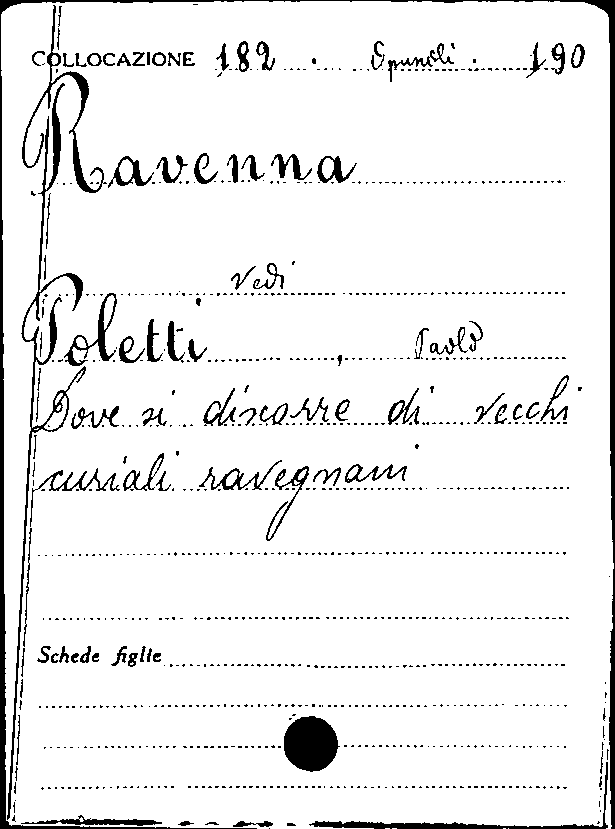 COLLOCAZIONE 182 . Opuscoli . 190
Ravenna
Vedi
Poletti , Paolo
Dove si discorre di vecchi
curiali ravegnani
Schede figlie